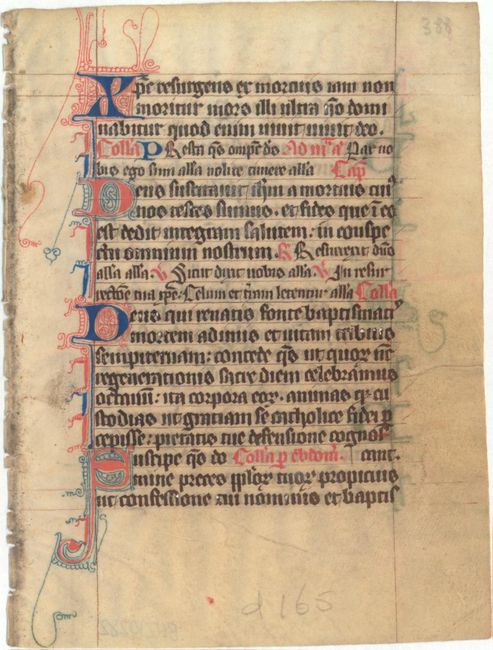 388
Xpc resurgens ex mortuis iam non
moritur mors illi ultra no domi
nabitur quod enim uiuit uiuit deo.
Colla Presta qs omps ds Ad m a Pax uo
bis ego sum alla nolite timere alla Cap
Deus suscitauit ihm a mortuis cui
nos testes sumus. et fides que i eo
est dedit integram salutem: in conspe
ctu omnium nostrum. R Resurrexit dns
alla alla. V Sicut dixit uobis alla. V In resur
rectone tua xpe. Celum et tra letentur alla Colla
Deus qui renatis fonte baptismatis
mortem adimis et uitam tribuis
sempiternam: concede qs ut quor
regenerationis sacre diem celebramus
octauum: ita corpora eor. animas q cu
stodias ut gratiam se catholice fidei p
cepisse: pietatis tue defensione cognos
Suscipe qs do Colla p ebdom. cant.
mine preces pplor tuor propicius
ut confessione tui nominis et baptis
d 165